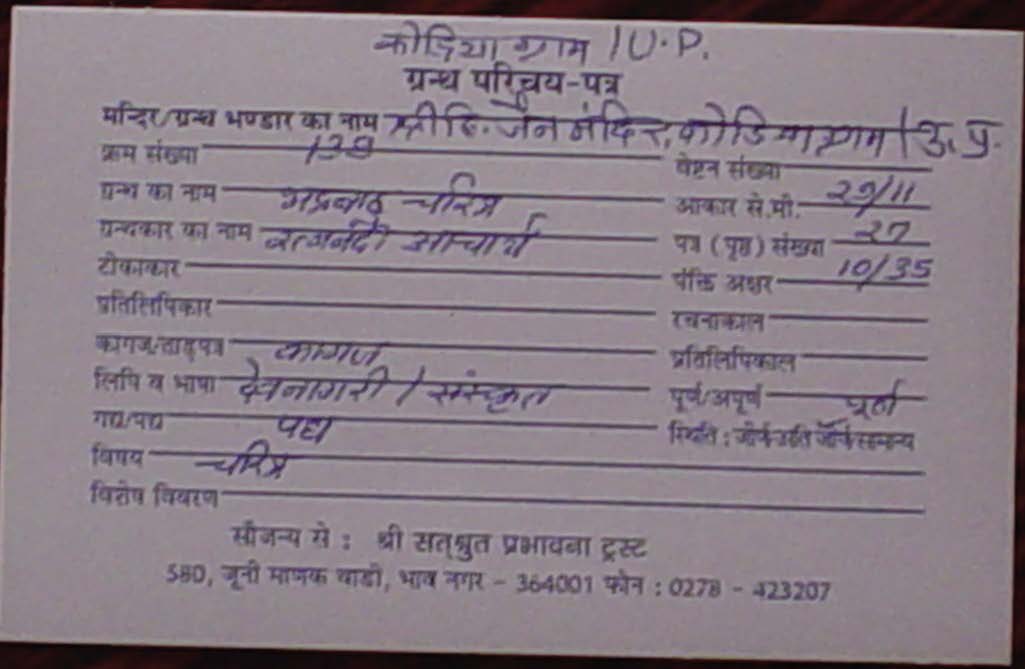 कोडिया ग्राम / U.P.
ग्रन्थ परिचय-पत्र
मन्दिर/ग्रन्थ भण्डार का नाम श्री दि. जैन मंदिर, कोडिया ग्राम / उ. प्र.
क्रम संख्या 139 वेष्टन संख्या
ग्रन्थ का नाम भद्रबाहु चरित्र आकार से.मी. 29/11
ग्रन्थकार का नाम रत्ननंदी आचार्य पत्र (पृष्ठ) संख्या 27
टीकाकार पंक्ति अक्षर 10/35
प्रतिलिपिकार रचनाकाल
कागज/ताड़पत्र कागज प्रतिलिपिकाल
लिपि व भाषा देवनागरी / संस्कृत पूर्ण/अपूर्ण पूर्ण
गद्य/पद्य पद्य स्थिति : जीर्ण अति जीर्ण सामान्य
विषय चरित्र
विशेष विवरण
सौजन्य से : श्री सत्श्रुत प्रभावना ट्रस्ट
580, जूनी माणक वाडी, भाव नगर - 364001 फोन : 0278 - 423207